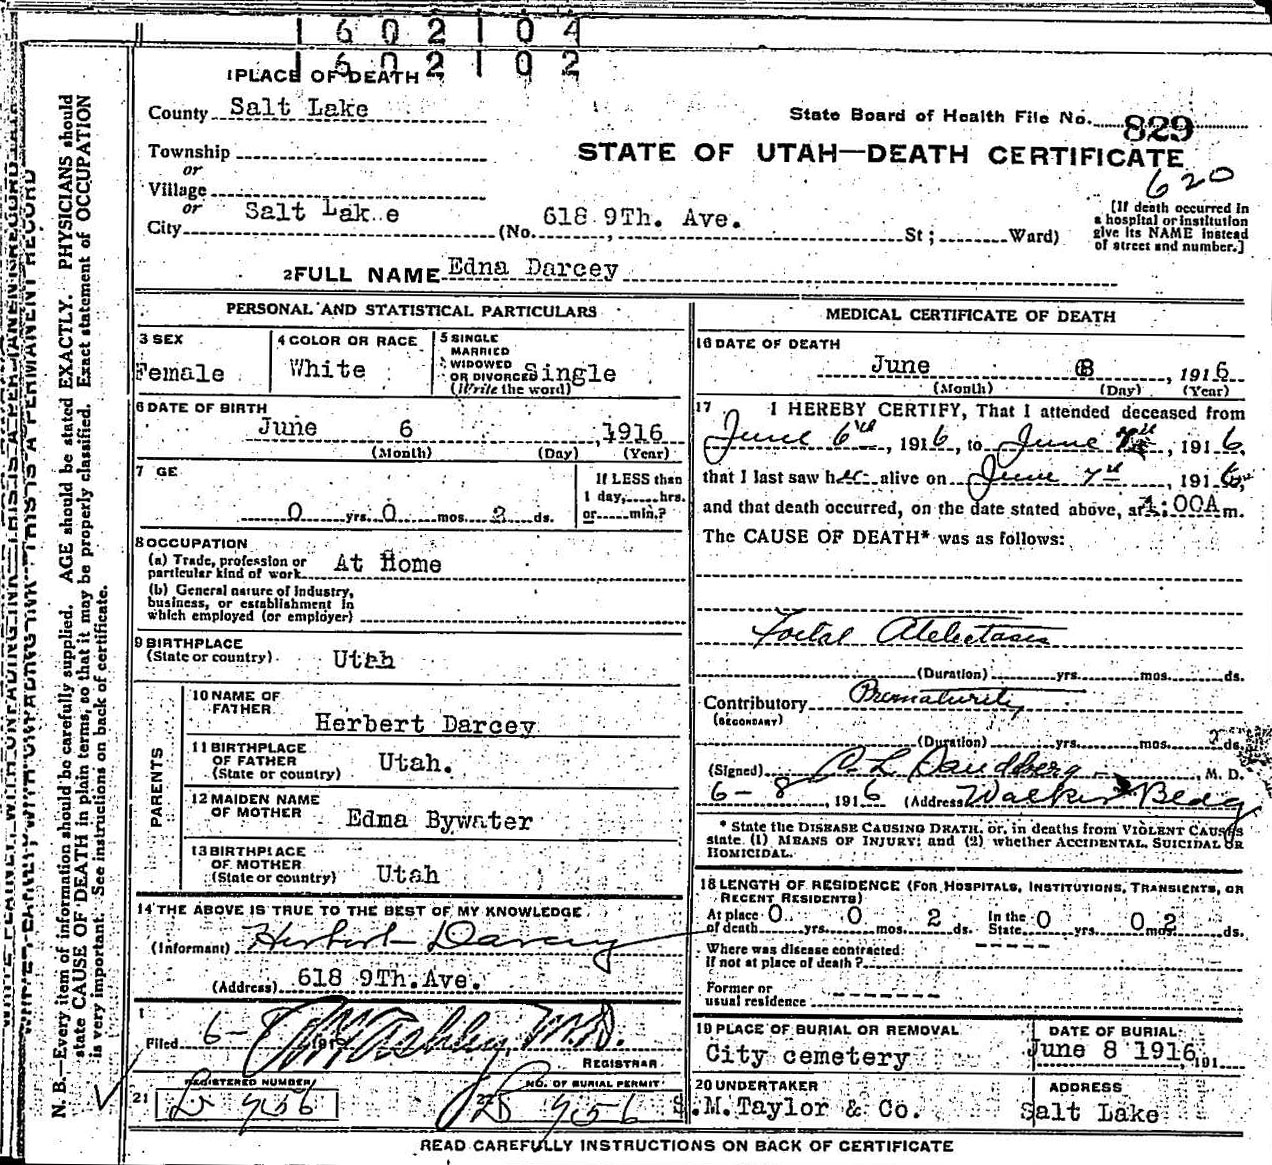 1 6 0 2 1 0 4
1 6 0 2 1 0 2
1 PLACE OF DEATH
County Salt Lake
State Board of Health File No. 829
Township
or
STATE OF UTAH—DEATH CERTIFICATE
620
Village
or
City Salt Lake (No. 618 9Th. Ave. St; Ward)
[If death occurred in
a hospital or institution
give its NAME instead
of street and number.]
2 FULL NAME Edna Darcey
PERSONAL AND STATISTICAL PARTICULARS
3 SEX
Female
4 COLOR OR RACE
White
5 SINGLE
MARRIED
WIDOWED
OR DIVORCED Single
(Write the word)
6 DATE OF BIRTH
June 6 , 1916
(Month) (Day) (Year)
7 GE
0 yrs. 0 mos. 2 ds.
If LESS than
1 day, hrs.
or min.?
8 OCCUPATION
(a) Trade, profession or
particular kind of work At Home
(b) General nature of Industry,
business, or establishment in
which employed (or employer)
9 BIRTHPLACE
(State or country) Utah
PARENTS
10 NAME OF
FATHER
Herbert Darcey
11 BIRTHPLACE
OF FATHER
(State or country) Utah.
12 MAIDEN NAME
OF MOTHER
Edma Bywater
13 BIRTHPLACE
OF MOTHER
(State or country) Utah
14 THE ABOVE IS TRUE TO THE BEST OF MY KNOWLEDGE
(Informant) Herbert Darcey
(Address) 618 9Th. Ave.
Filed 6- 191 M.D.
REGISTRAR
21 REGISTERED NUMBER
22 NO. OF BURIAL PERMIT
MEDICAL CERTIFICATE OF DEATH
16 DATE OF DEATH
June 8 , 1916
(Month) (Day) (Year)
17 I HEREBY CERTIFY, That I attended deceased from
June 6th, 1916, to June 7th, 1916,
that I last saw her alive on June 7th, 1916,
and that death occurred, on the date stated above, at 1:00A m.
The CAUSE OF DEATH* was as follows:
Foetal Atelectasis
(Duration) yrs. mos. ds.
Contributory Prematurity
(SECONDARY)
(Duration) yrs. mos. 2 ds.
(Signed) C L Sandberg , M. D.
6-8 , 1916 (Address Walker Bldg
* State the DISEASE CAUSING DEATH, or, in deaths from VIOLENT CAUSES
state (1) MEANS OF INJURY; and (2) whether ACCIDENTAL, SUICIDAL OR
HOMICIDAL.
18 LENGTH OF RESIDENCE (FOR HOSPITALS, INSTITUTIONS, TRANSIENTS, OR
RECENT RESIDENTS)
At place 0 0 2 In the 0 0 2
of death yrs. mos. ds. State yrs. mos. ds.
Where was disease contracted
if not at place of death?
Former or
usual residence
19 PLACE OF BURIAL OR REMOVAL
City cemetery
DATE OF BURIAL
June 8 1916, 191
20 UNDERTAKER
S.M.Taylor & Co.
ADDRESS
Salt Lake
READ CAREFULLY INSTRUCTIONS ON BACK OF CERTIFICATE
N. B.—Every item of information should be carefully supplied. AGE should be stated EXACTLY. PHYSICIANS should
state CAUSE OF DEATH in plain terms, so that it may be properly classified. Exact statement of OCCUPATION
is very important. See instructions on back of certificate.